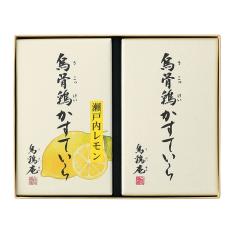 烏骨鶏かすていら
瀬戸内レモン
烏鶏庵
烏骨鶏かすていら
烏鶏庵